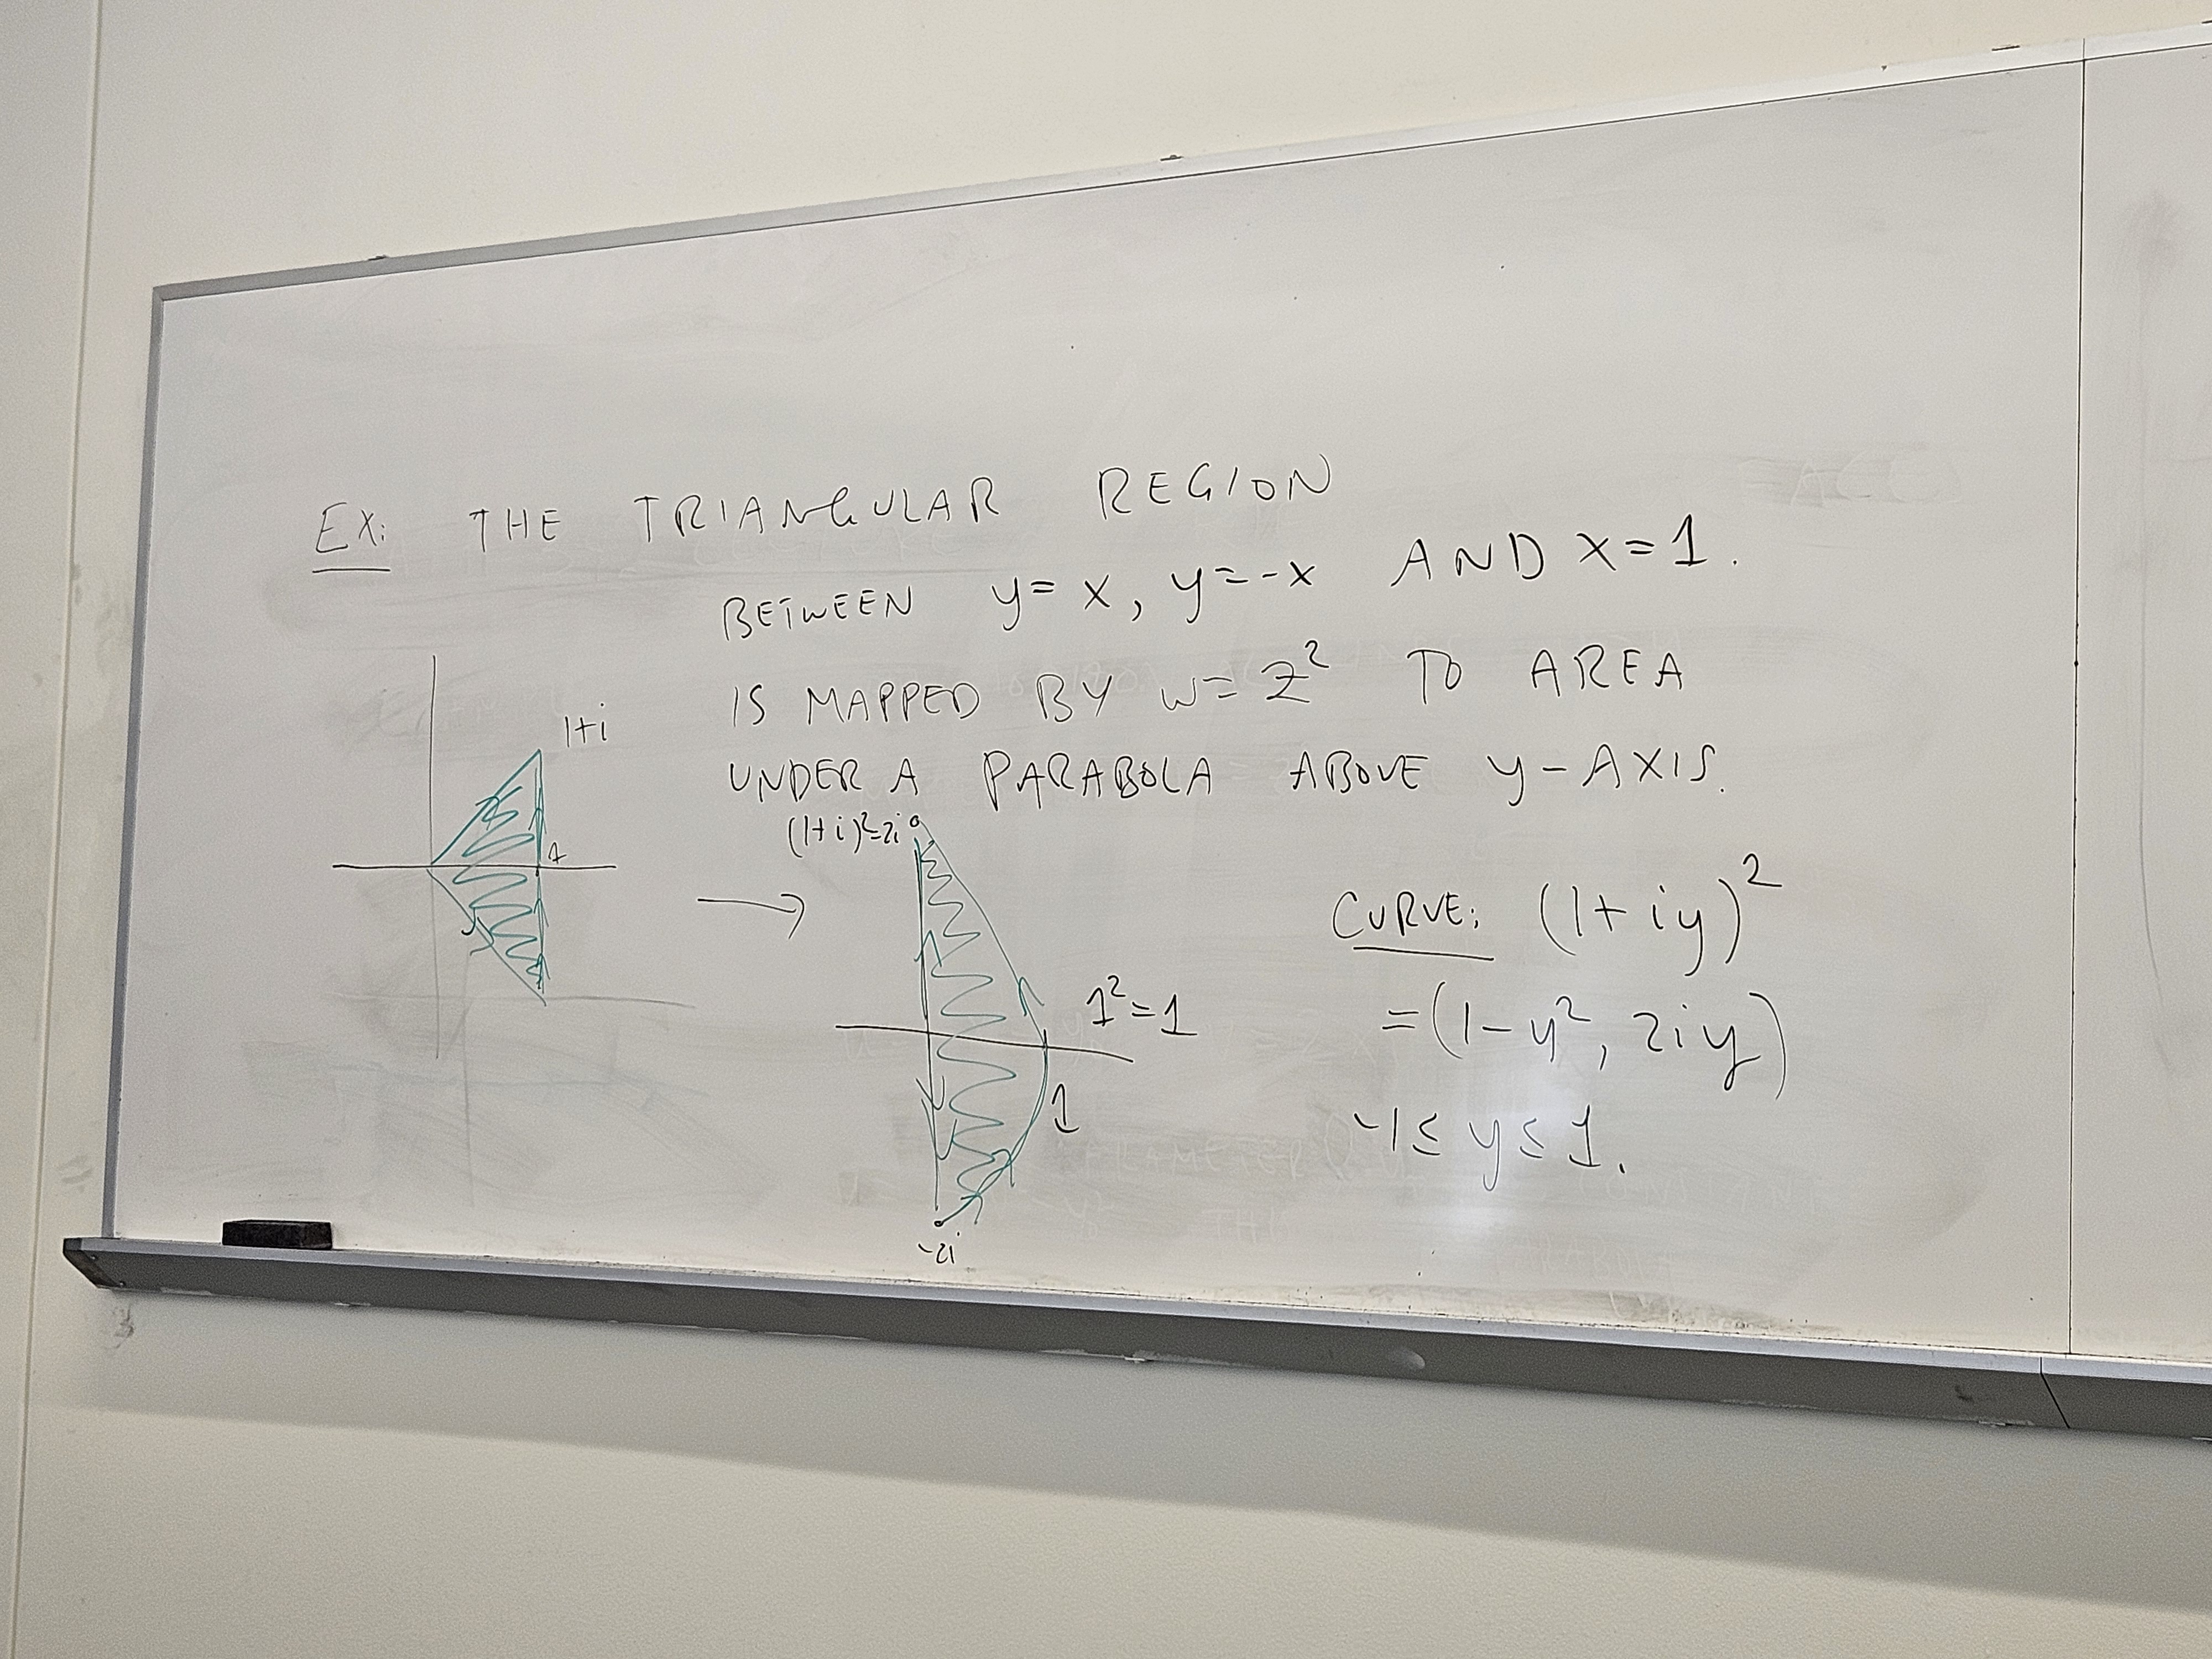 EX: THE TRIANGULAR REGION
BETWEEN y=x, y=-x AND x=1.
IS MAPPED BY w=z² TO AREA
UNDER A PARABOLA ABOVE y-AXIS.
1+i
1
(1+i)²=2i
1²=1
1
-2i
CURVE: (1+iy)²
=(1-y², 2iy)
-1≤y≤1.